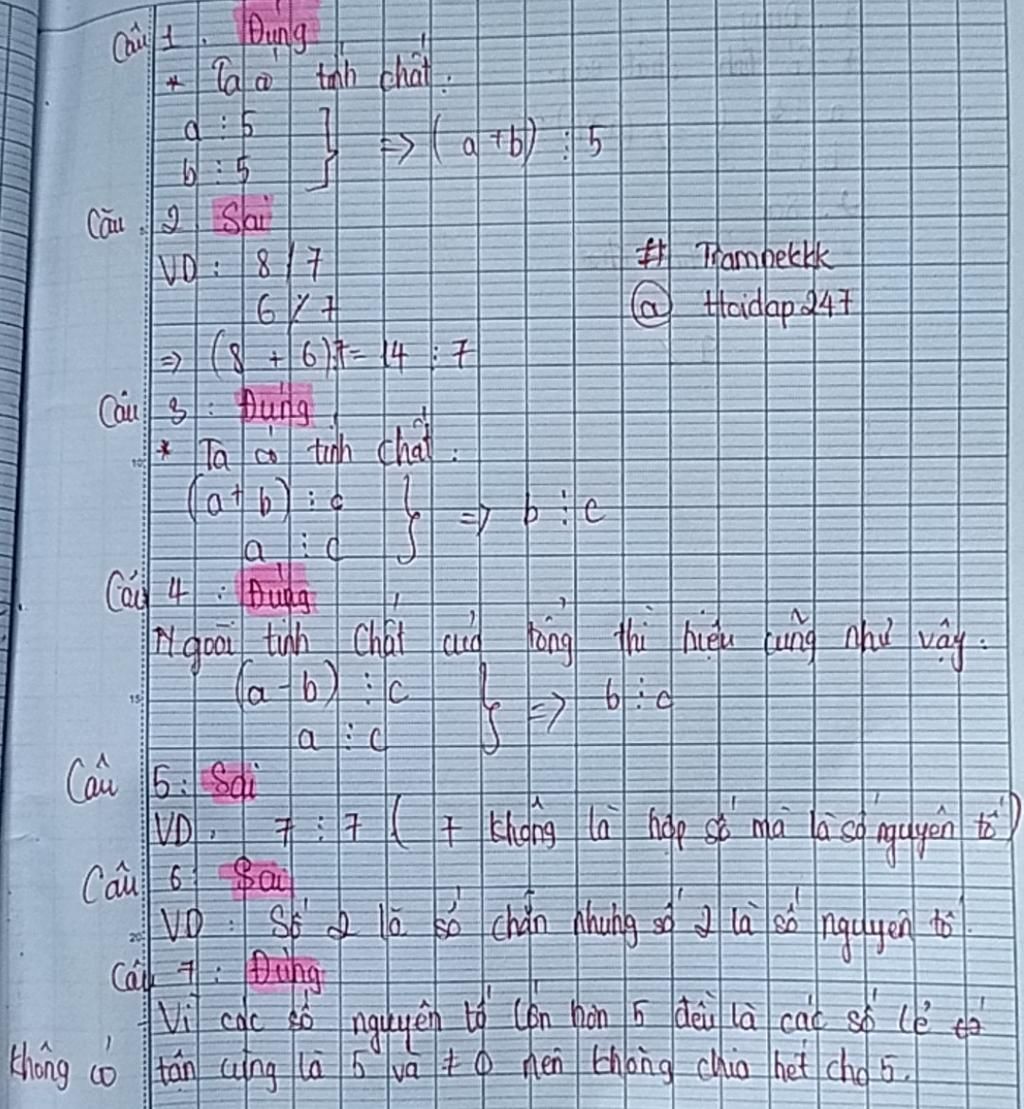 Câu 1. Đúng
* Ta có tính chất:
a ⋮ 5
b ⋮ 5 } => (a + b) ⋮ 5
Câu 2 Sai
VD: 8 / 7
# Tramnekkk
6 ⋮̸ 7
@ Hoidap247
=> (8 + 6):7 = 14 : 7
Câu 3: Đúng
* Ta có tính chất:
(a + b) ⋮ c
a ⋮ c } => b ⋮ c
Câu 4: Đúng
Ngoài tính chất của tổng thì hiệu cũng như vậy.
(a - b) ⋮ c
a ⋮ c } => b ⋮ c
Câu 5: Sai
VD: 7 ⋮ 7 ( 7 không là hợp số mà là số nguyên tố)
Câu 6: Sai
VD: Số 2 là số chẵn nhưng số 2 là số nguyên tố.
Câu 7: Đúng
Vì các số nguyên tố lớn hơn 5 đều là các số lẻ
không có tận cùng là 5 và ≠ 0 nên không chia hết cho 5.